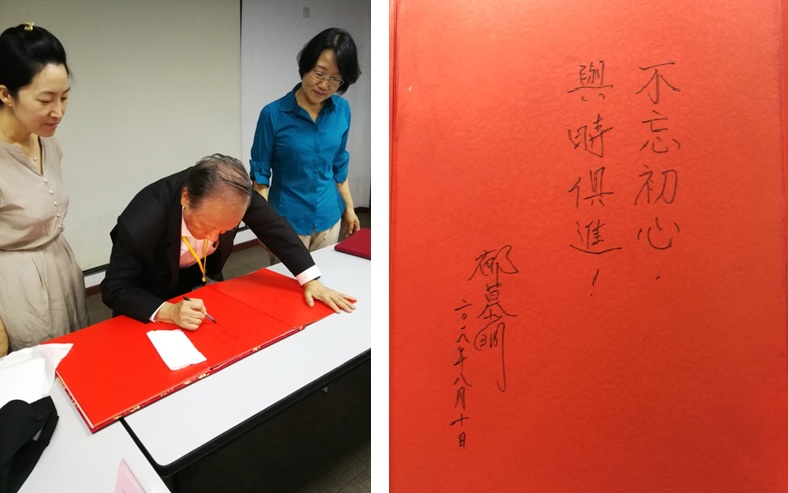 不忘初心，
與時俱進！
郁慕明
二〇一八年八月十日